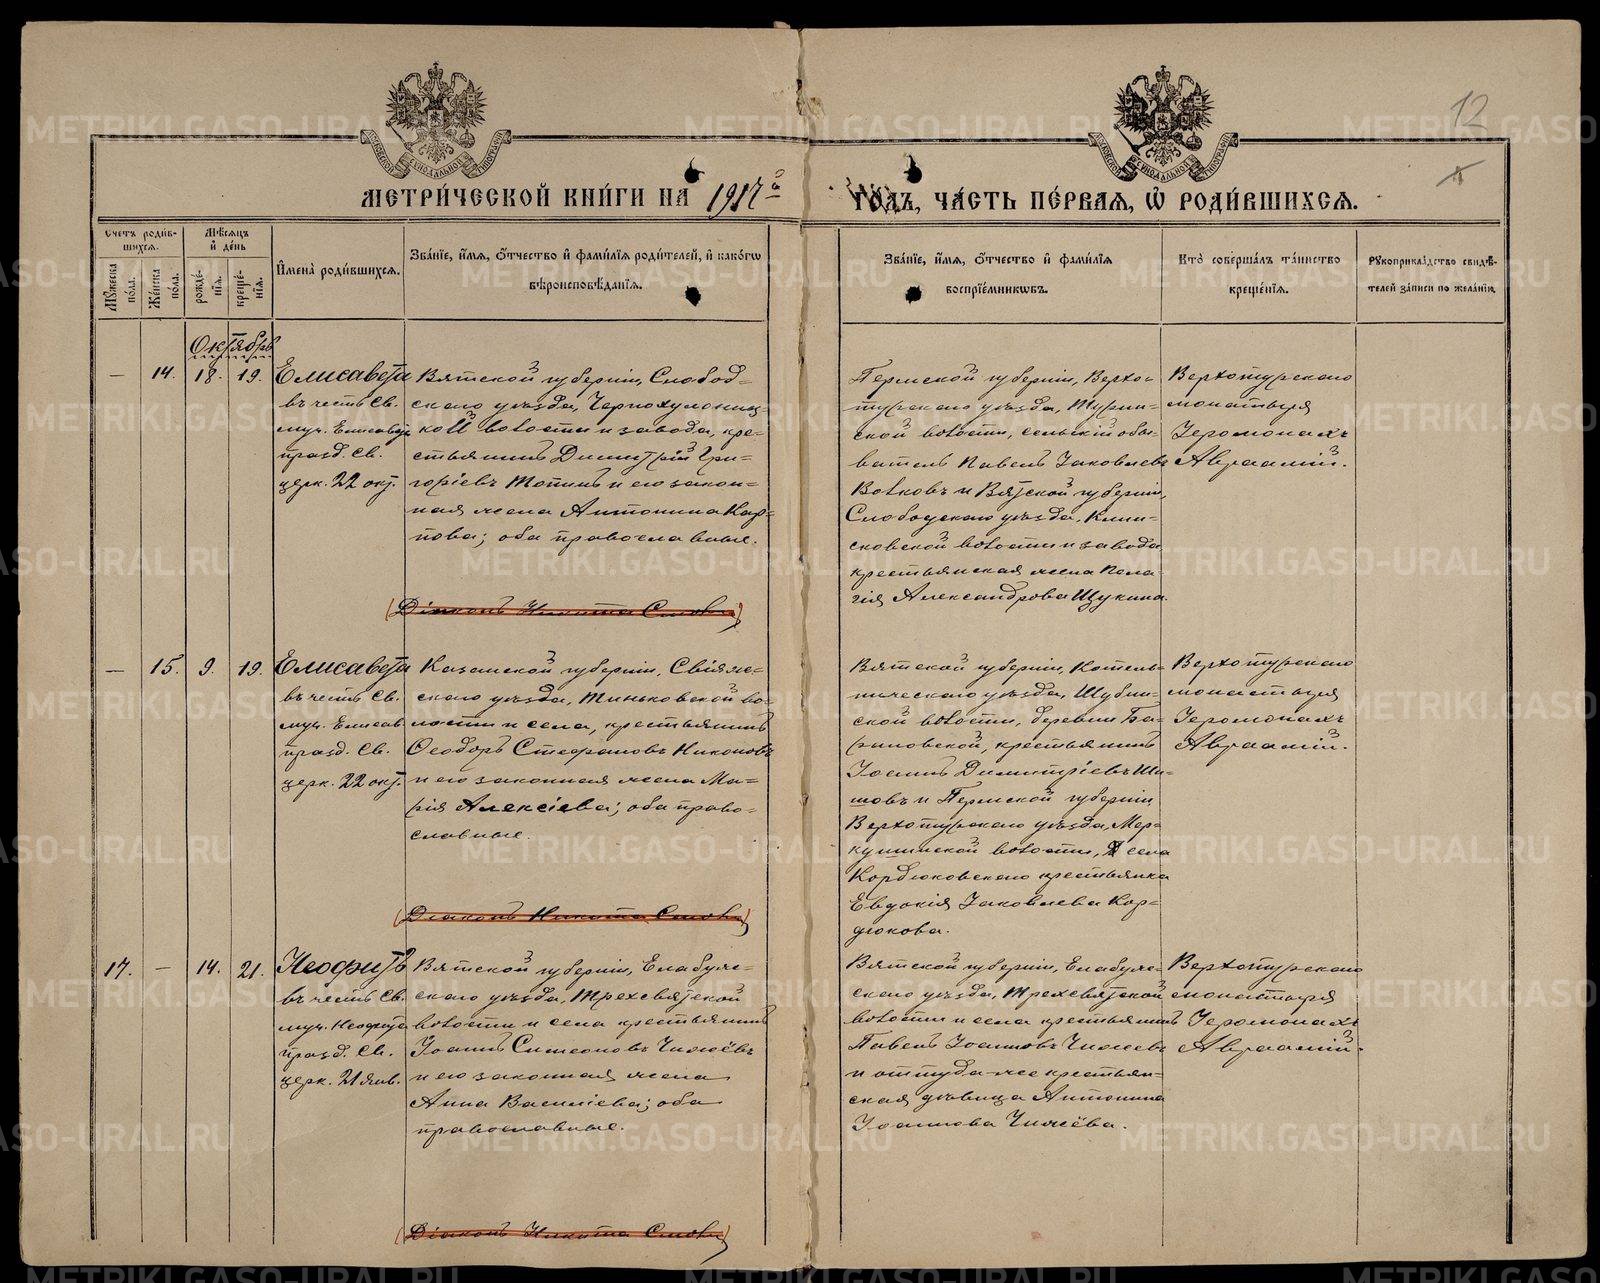 12
МОСКОВСКОЙ СѴНОДАЛЬНОЙ ТИПОГРАФІИ
МОСКОВСКОЙ СѴНОДАЛЬНОЙ ТИПОГРАФІИ
МЕТРИ́ЧЕСКОЙ КНИ́ГИ НА 1917й
ГО́ДЪ, ЧА́СТЬ ПЕ́РВАЯ, Ѡ РОДИ́ВШИХСЯ.
Счетъ роди́в-
шихся.
Мѣсяцъ
и де́нь
Му́жеска по́ла.
Же́нска по́ла.
рожде́-
нїя.
креще́-
нїя.
И҆мена̀ роди́вшихся.
Зва́нїе, и҆́мя, ѻ҆́тчество и҆ фамилїя роди́телей, и҆ како́гѡ
вѣроисповѣ́данїя.
Зва́нїе, и҆́мя, ѻ҆́тчество и҆ фами́лїя
воспрїе́мникѡвъ.
Кто̀ соверша́лъ та́инство
креще́нїя.
Рꙋкоприкла́дство свидѣ́-
телей за́писи по жела́нїю.
Октябрь
— 14. 18. 19.
Елисавета
въ честь Св.
муч. Елисавет
празд. Св.
церк. 22 окт.
Вятской губерніи, Слобод-
скаго уѣзда, Чернохолуниц-
кой волости и завода, кре-
стьянинъ Димитрій Гри-
горіевъ Топинъ и его закон-
ная жена Антонина Кар-
пова; оба православные.
Пермской губерніи, Верхо-
турскаго уѣзда, Турин-
ской волости, сельскій обы-
ватель Павелъ Іаковлевъ
Волковъ и Вятской губерніи,
Слободскаго уѣзда, Клим-
ковской волости и завода
крестьянская жена Пела-
гія Александрова Щукина.
Верхотурскаго
монастыря
Іеромонахъ
Авраамій.
Діаконъ Никита
— 15. 9. 19.
Елисавета
въ честь Св.
муч. Елисав.
празд. Св.
церк. 22 окт.
Казанской губерніи, Свіяж-
скаго уѣзда, Тиньковской во-
лости и села, крестьянинъ
Ѳеодоръ Стефановъ Никоновъ
и его законная жена Ма-
рія Алексіева; оба право-
славные.
Вятской губерніи, Котель-
ническаго уѣзда, Шубин-
ской волости, деревни Ба-
риновской, крестьянинъ
Іоаннъ Димитріевъ Ши-
шовъ и Пермской губерніи
Верхотурскаго уѣзда, Мер-
кушинской волости, села
Кордюковскаго крестьянка
Евдокія Іаковлева Кор-
дюкова.
Верхотурскаго
монастыря
Іеромонахъ
Авраамій.
Діаконъ Никита
17. — 14. 21.
Неофитъ
въ честь Св.
муч. Неофита
празд. Св.
церк. 21 янв.
Вятской губерніи, Елабуж-
скаго уѣзда, Трехсвятской
волости и села крестьянинъ
Іоаннъ Симеоновъ Чижёвъ
и его законная жена
Анна Василіева; оба
православные.
Вятской губерніи, Елабуж-
скаго уѣзда, Трехсвятской
волости и села крестьянинъ
Павелъ Іоанновъ Чижевъ
и оттуда-же крестьян-
ская дѣвица Антонина
Іоаннова Чижёва.
Верхотурскаго
монастыря
Іеромонахъ
Авраамій.
Діаконъ Никита
METRIKI.GASO-URAL.RU